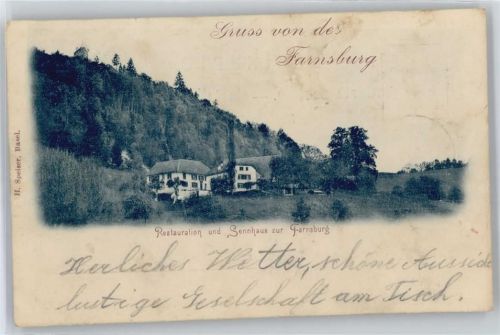 Gruss von der
Farnsburg
H. Speiser, Basel.
Restauration und Sennhaus zur Farnsburg
Herrliches Wetter, schöne Aussich
lustige Geselschaft am Tisch.